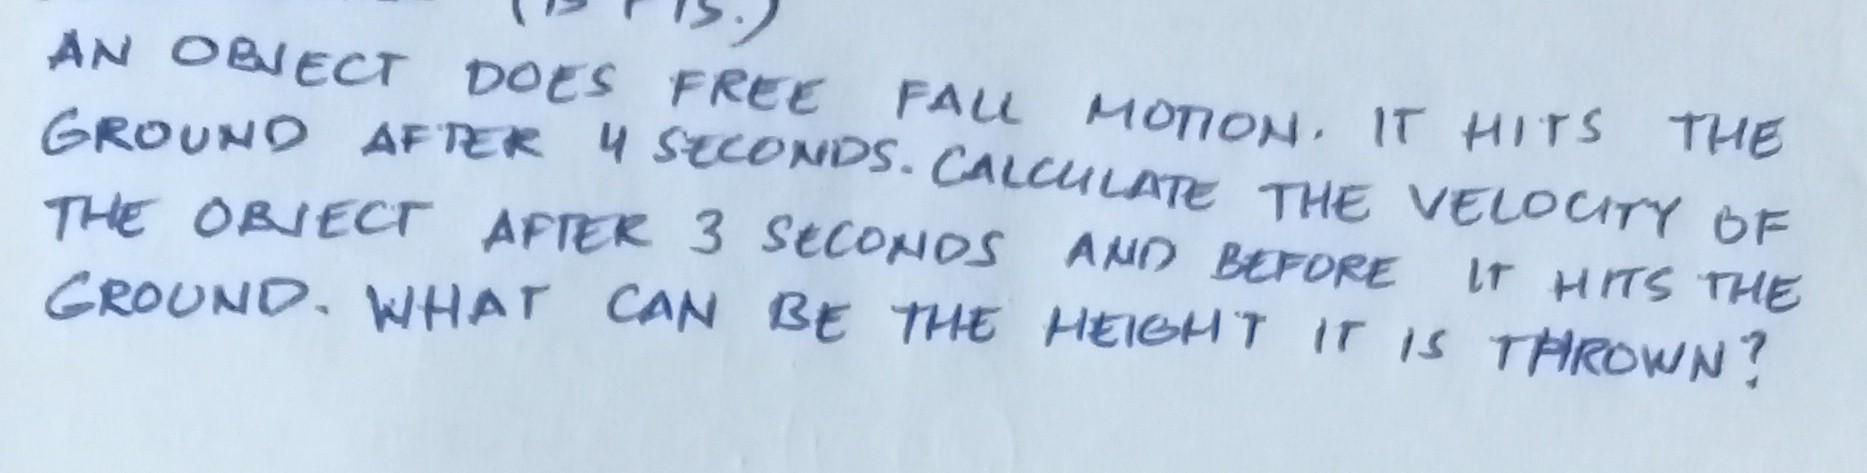 AN OBJECT DOES FREE FALL MOTION. IT HITS THE
GROUND AFTER 4 SECONDS. CALCULATE THE VELOCITY OF
THE OBJECT AFTER 3 SECONDS AND BEFORE IT HITS THE
GROUND. WHAT CAN BE THE HEIGHT IT IS THROWN?